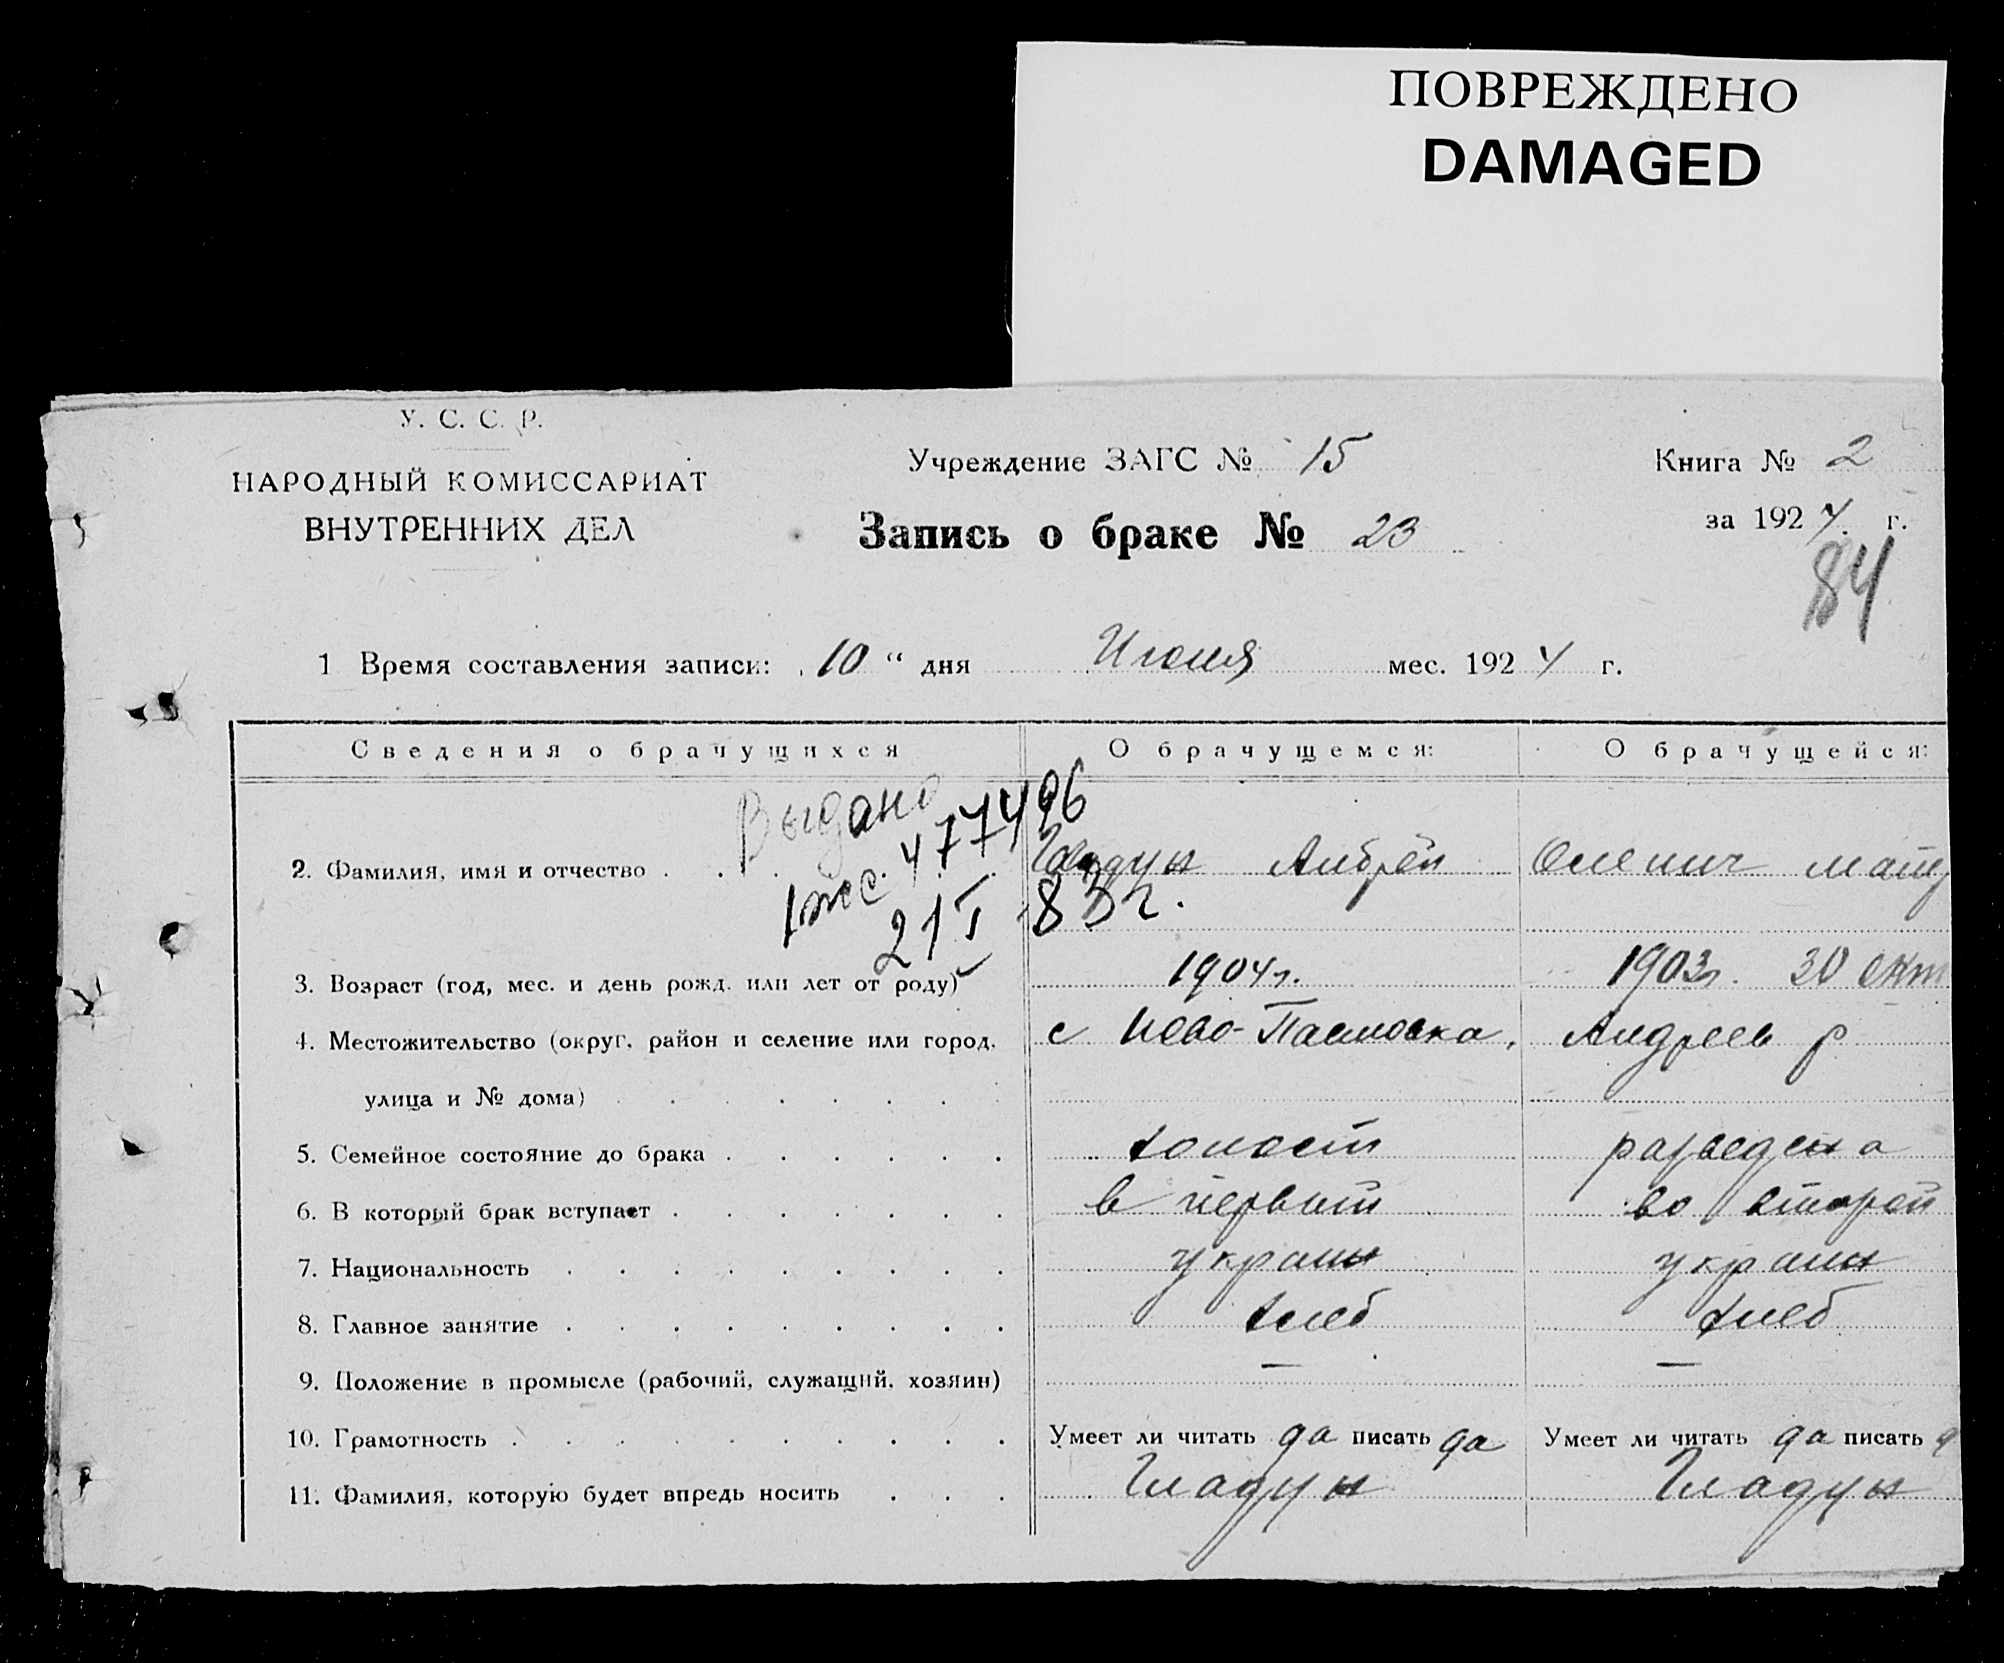 ПОВРЕЖДЕНО
DAMAGED
У. С. С. Р.
НАРОДНЫЙ КОМИССАРИАТ
ВНУТРЕННИХ ДЕЛ
Учреждение ЗАГС № 15
Книга № 2
Запись о браке № 23
за 1924 г.
84
1 Время составления записи: „ 10 “ дня Июня мес. 1924 г.
Сведения о брачущихся О брачущемся: О брачущейся:
Выдано
477496
21 I 83 г.
2. Фамилия, имя и отчество Гладун Андрей Оленич
3. Возраст (год, мес. и день рожд. или лет от роду) 1904 г. 1903 г. 30 окт
4. Местожительство (округ, район и селение или город, с Ново-Павловка, Андреев р
улица и № дома)
5. Семейное состояние до брака холост разведена
6. В который брак вступает в первый во второй
7. Национальность украин украин
8. Главное занятие хлеб хлеб
9. Положение в промысле (рабочий, служащий, хозяин) — —
10. Грамотность Умеет ли читать да писать да Умеет ли читать да писать
11. Фамилия, которую будет впредь носить Гладун Гладун